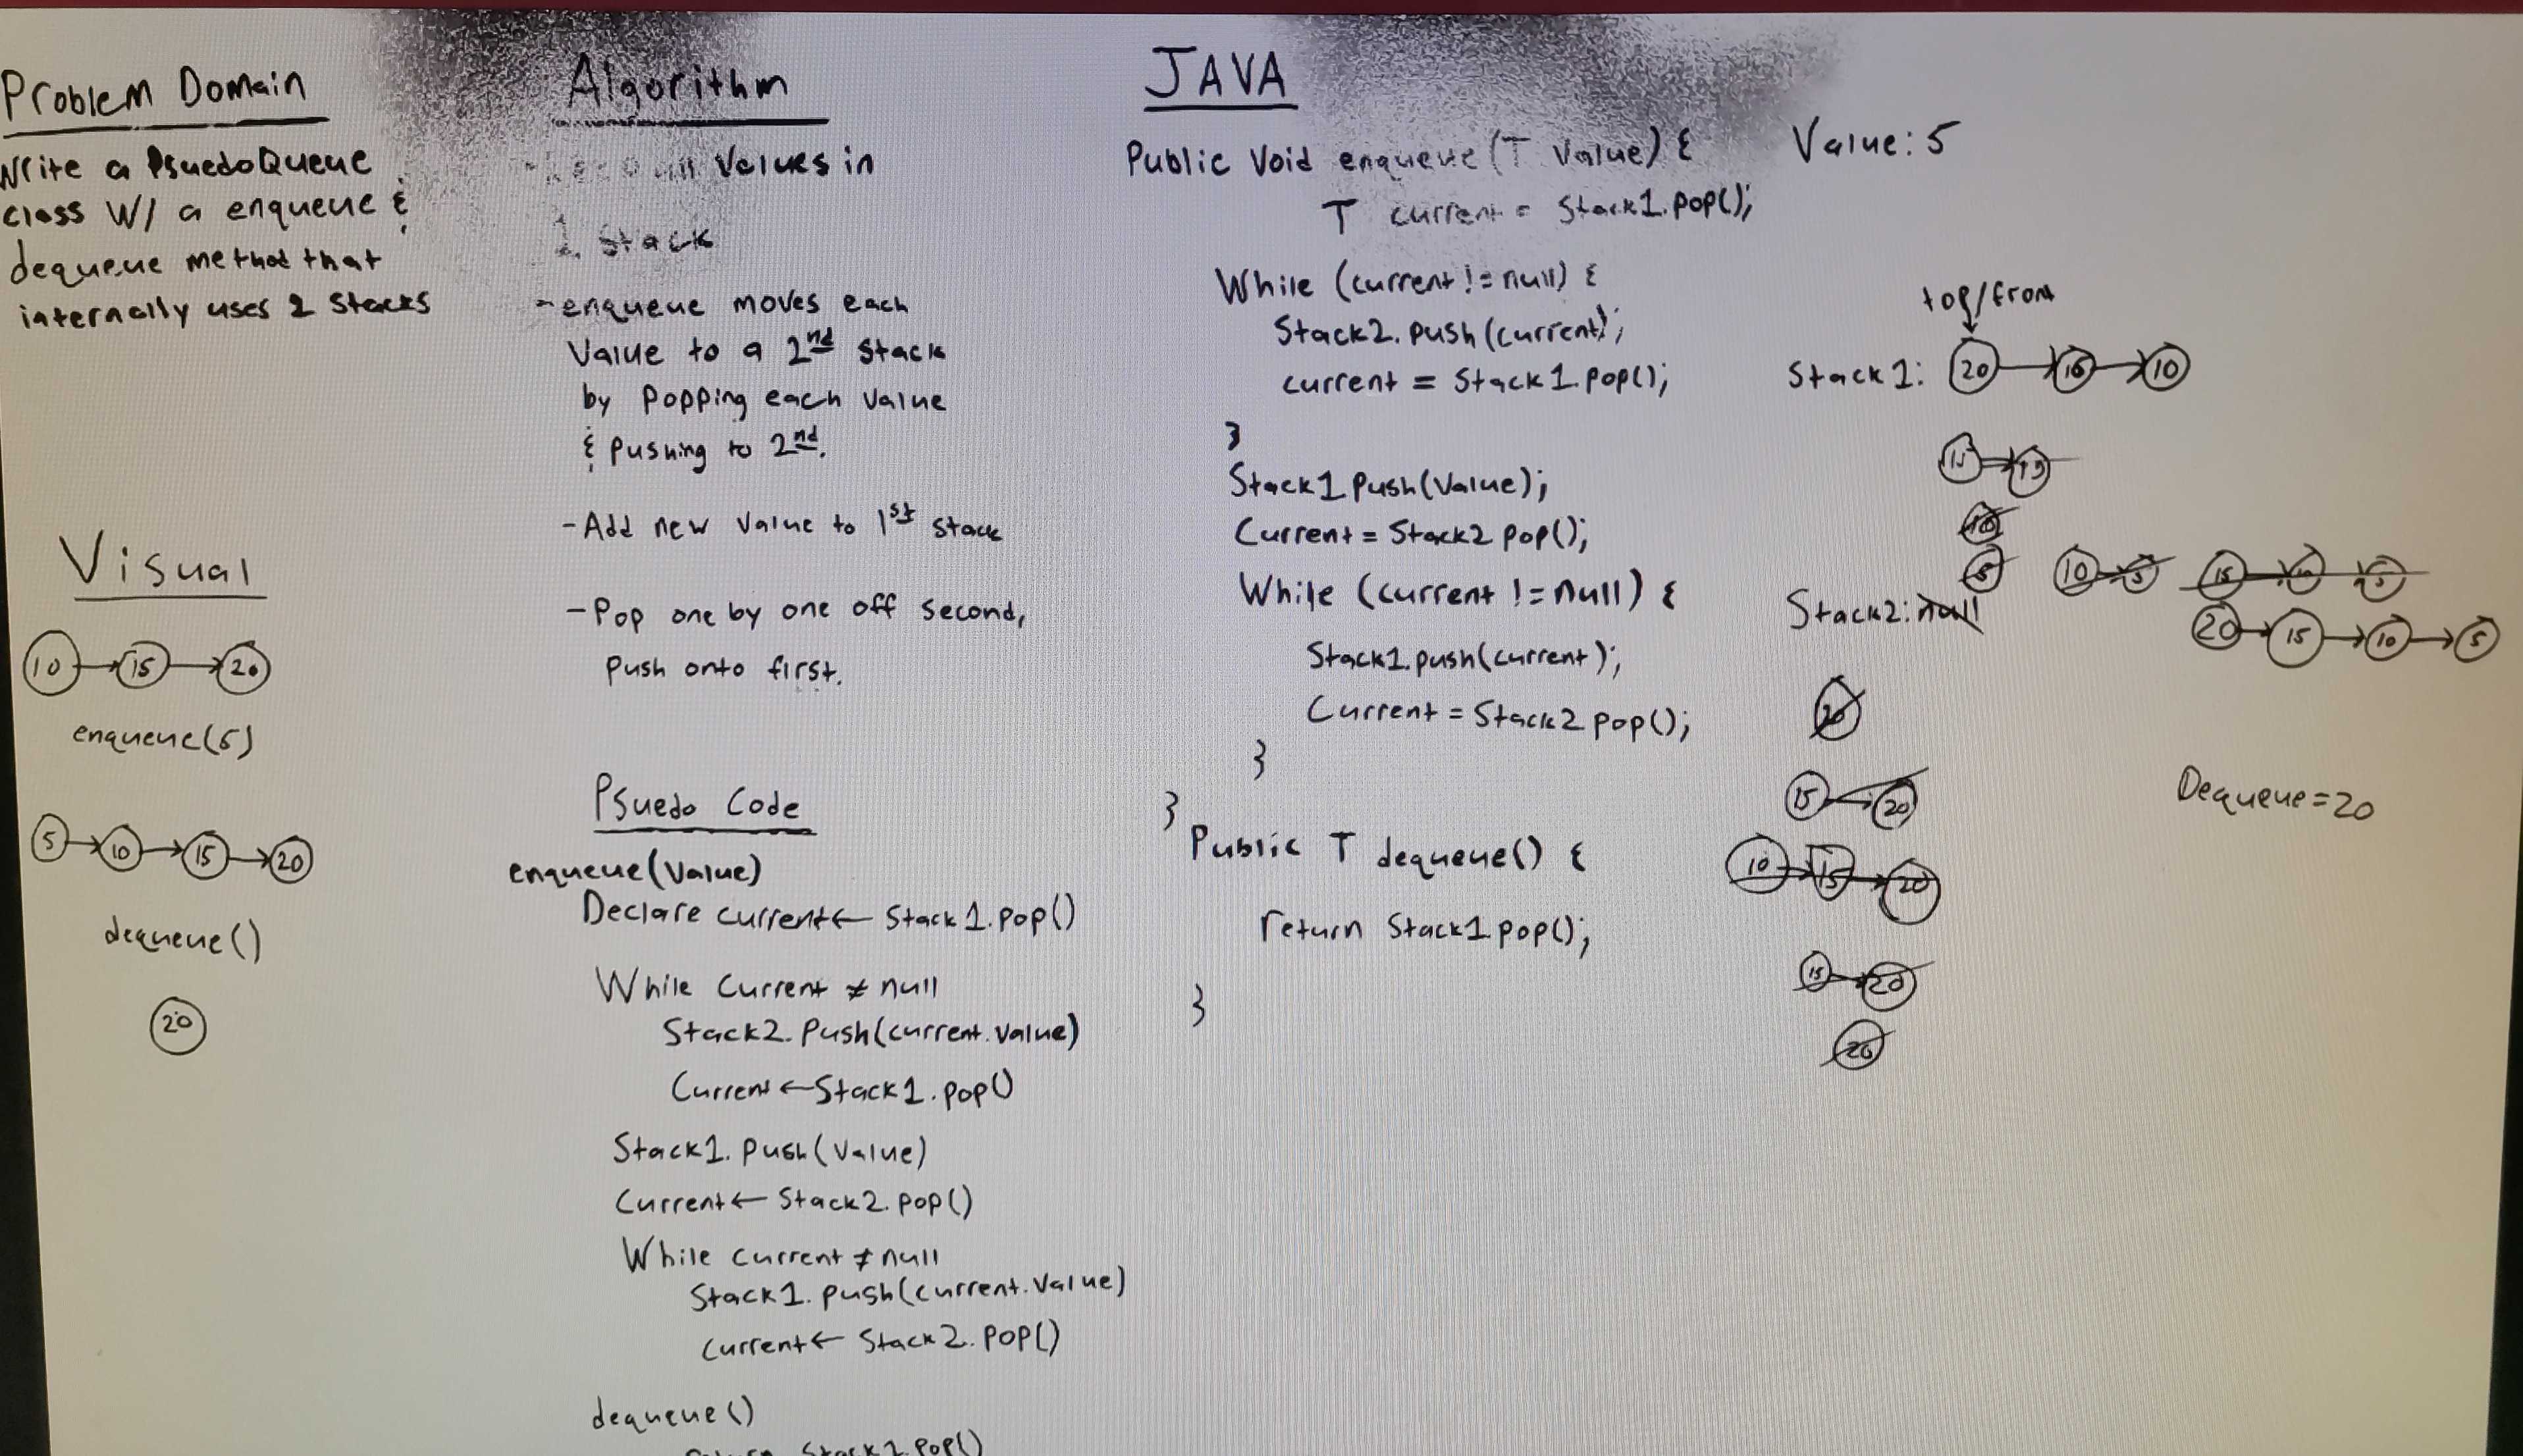 Problem Domain
Write a PsuedoQueue
class W/ a enqueue &
dequeue method that
internally uses 2 Stacks
Visual
10 → 15 → 20
enqueue(5)
5 → 10 → 15 → 20
dequeue()
20
Algorithm
Values in
1 Stack
- enqueue moves each
Value to a 2nd Stack
by Popping each Value
& Pushing to 2nd.
- Add new Value to 1st Stack
- Pop one by one off second,
Push onto first.
Psuedo Code
enqueue(Value)
Declare current ← Stack1.pop()
While Current ≠ null
Stack2.Push(current.Value)
Current ← Stack1.pop()
Stack1.Push(Value)
Current ← Stack2.pop()
While current ≠ null
Stack1.push(current.Value)
current ← Stack2.pop()
dequeue()
return Stack1.pop()
JAVA
Public Void enqueue(T Value) {
T current = Stack1.pop();
While (current != null) {
Stack2.push(current);
current = Stack1.pop();
}
Stack1 Push(Value);
Current = Stack2 pop();
While (current != null) {
Stack1.push(current);
Current = Stack2 pop();
}
}
Public T dequeue() {
return Stack1 pop();
}
Value: 5
top/front
Stack1: 20 → 15 → 10
15 → 10
10
5
10 → 5
15 → 10 → 5
Stack2: null
20 → 15 → 10 → 5
20
15 → 20
10 → 15 → 20
15 → 20
20
Dequeue = 20